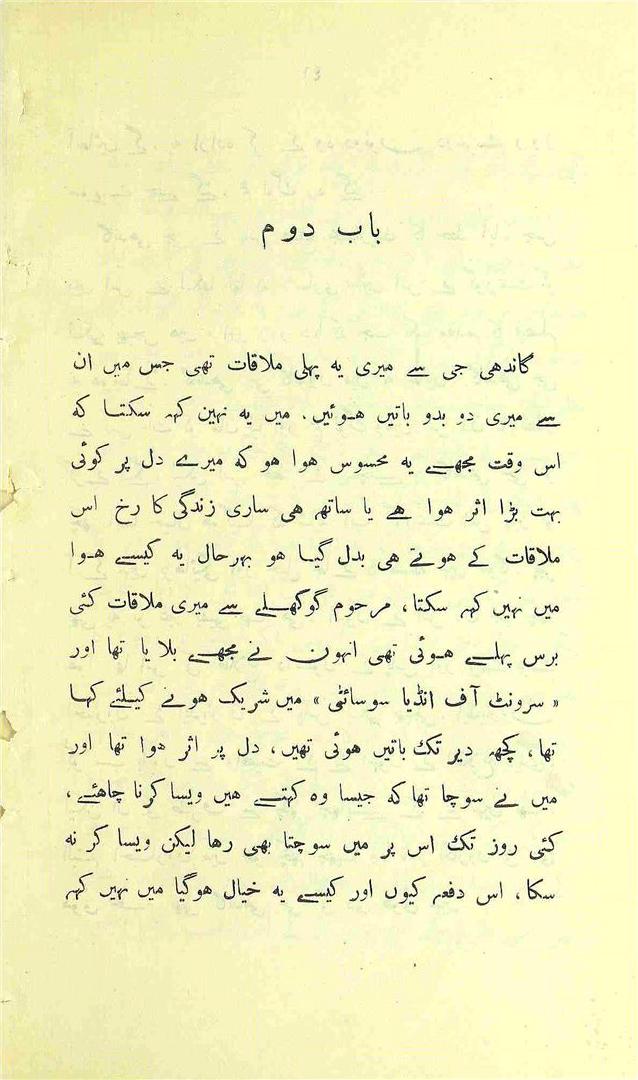 باب دوم
گاندھی جی سے میری یہ پہلی ملاقات تھی جس میں ان
سے میری دو بدو باتیں ہوئیں. میں یہ نہین کہہ سکتا کہ
اس وقت مجھے یہ محسوس ہوا ہو کہ میرے دل پر کوئی
بہت بڑا اثر ہوا ہے یا ساتھ ہی ساری زندگی کا رخ اس
ملاقات کے ہوتے ہی بدل گیا ہو بہرحال یہ کیسے ہوا
میں نہیں کہہ سکتا، مرحوم گوکھلے سے میری ملاقات کئی
برس پہلے ہوئی تھی انہون نے مجھے بلایا تھا اور
« سرونٹ آف انڈیا سوسائٹی » میں شریک ہونے کیلئے کہا
تھا، کچھ دیر تک باتیں ہوئی تھیں، دل پر اثر ہوا تھا اور
میں نے سوچا تھا کہ جیسا وہ کہتے ہیں ویسا کرنا چاہئے،
کئی روز تک اس پر میں سوچتا بھی رہا لیکن ویسا کر نہ
سکا، اس دفعہ کیوں اور کیسے یہ خیال ہوگیا میں نہیں کہہ